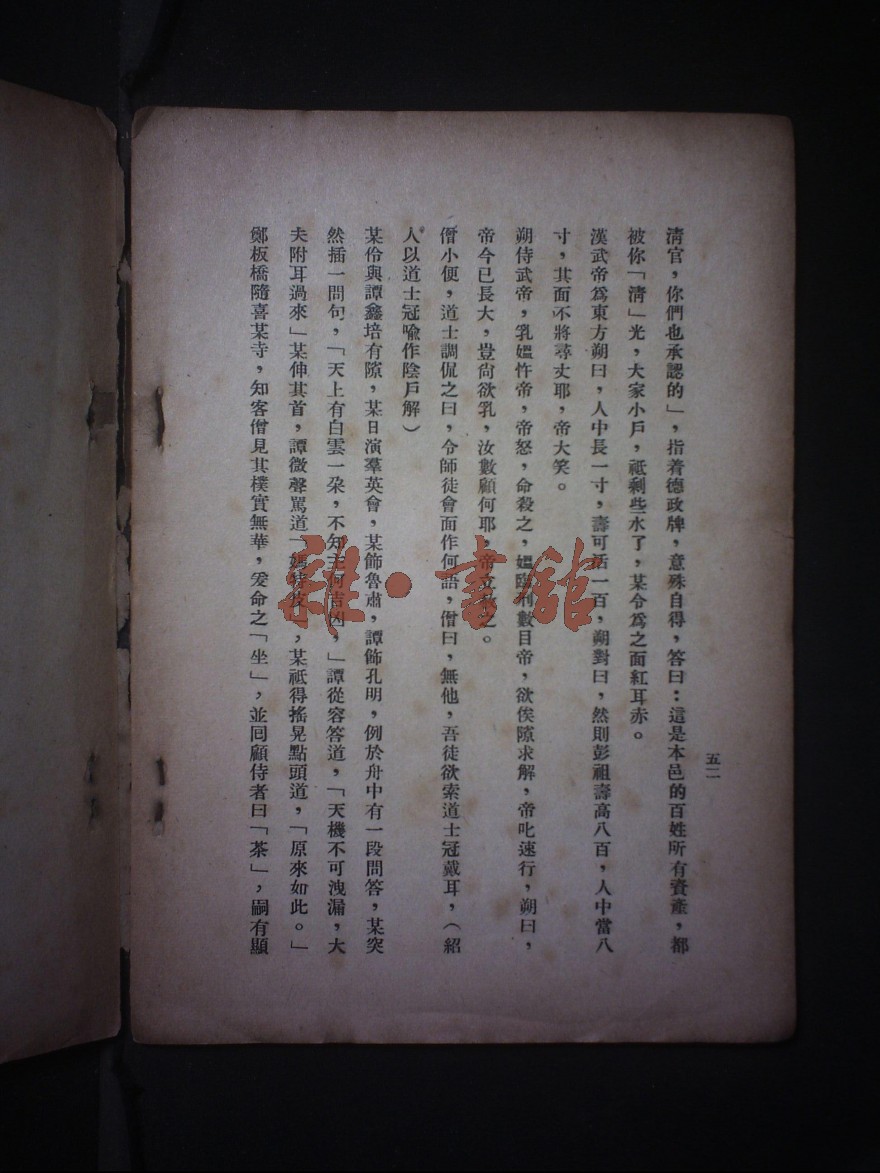 清官，你們也承認的」，指着德政牌，意殊自得，答曰：這是本邑的百姓所有資產，都
被你「清」光，大家小戶，祗剩些水了，某令爲之面紅耳赤。
漢武帝爲東方朔曰，人中長一寸，壽可活一百，朔對曰，然則彭祖壽高八百，人中當八
寸，其面不將尋丈耶，帝大笑。
朔侍武帝，乳媼忤帝，帝怒，命殺之，媼臨刑數目帝，欲俟隙求解，帝叱速行，朔曰，
帝今已長大，豈尙欲乳，汝數顧何耶，帝立赦之。
僧小便，道士調侃之曰，令師徒會面作何語，僧曰，無他，吾徒欲索道士冠戴耳，（紹
人以道士冠喩作陰戶解）
某伶與譚鑫培有隙，某日演羣英會，某飾魯肅，譚飾孔明，例於舟中有一段問答，某突
然插一問句，「天上有白雲一朶，不知主何吉凶，」譚從容答道，「天機不可洩漏，大
夫附耳過來」某伸其首，譚微聲罵道「媽 」，某祗得搖晃點頭道，「原來如此。」
鄭板橋隨喜某寺，知客僧見其樸實無華，爰命之「坐」，並囘顧侍者曰「茶」，嗣有顯
五二
雜·書館